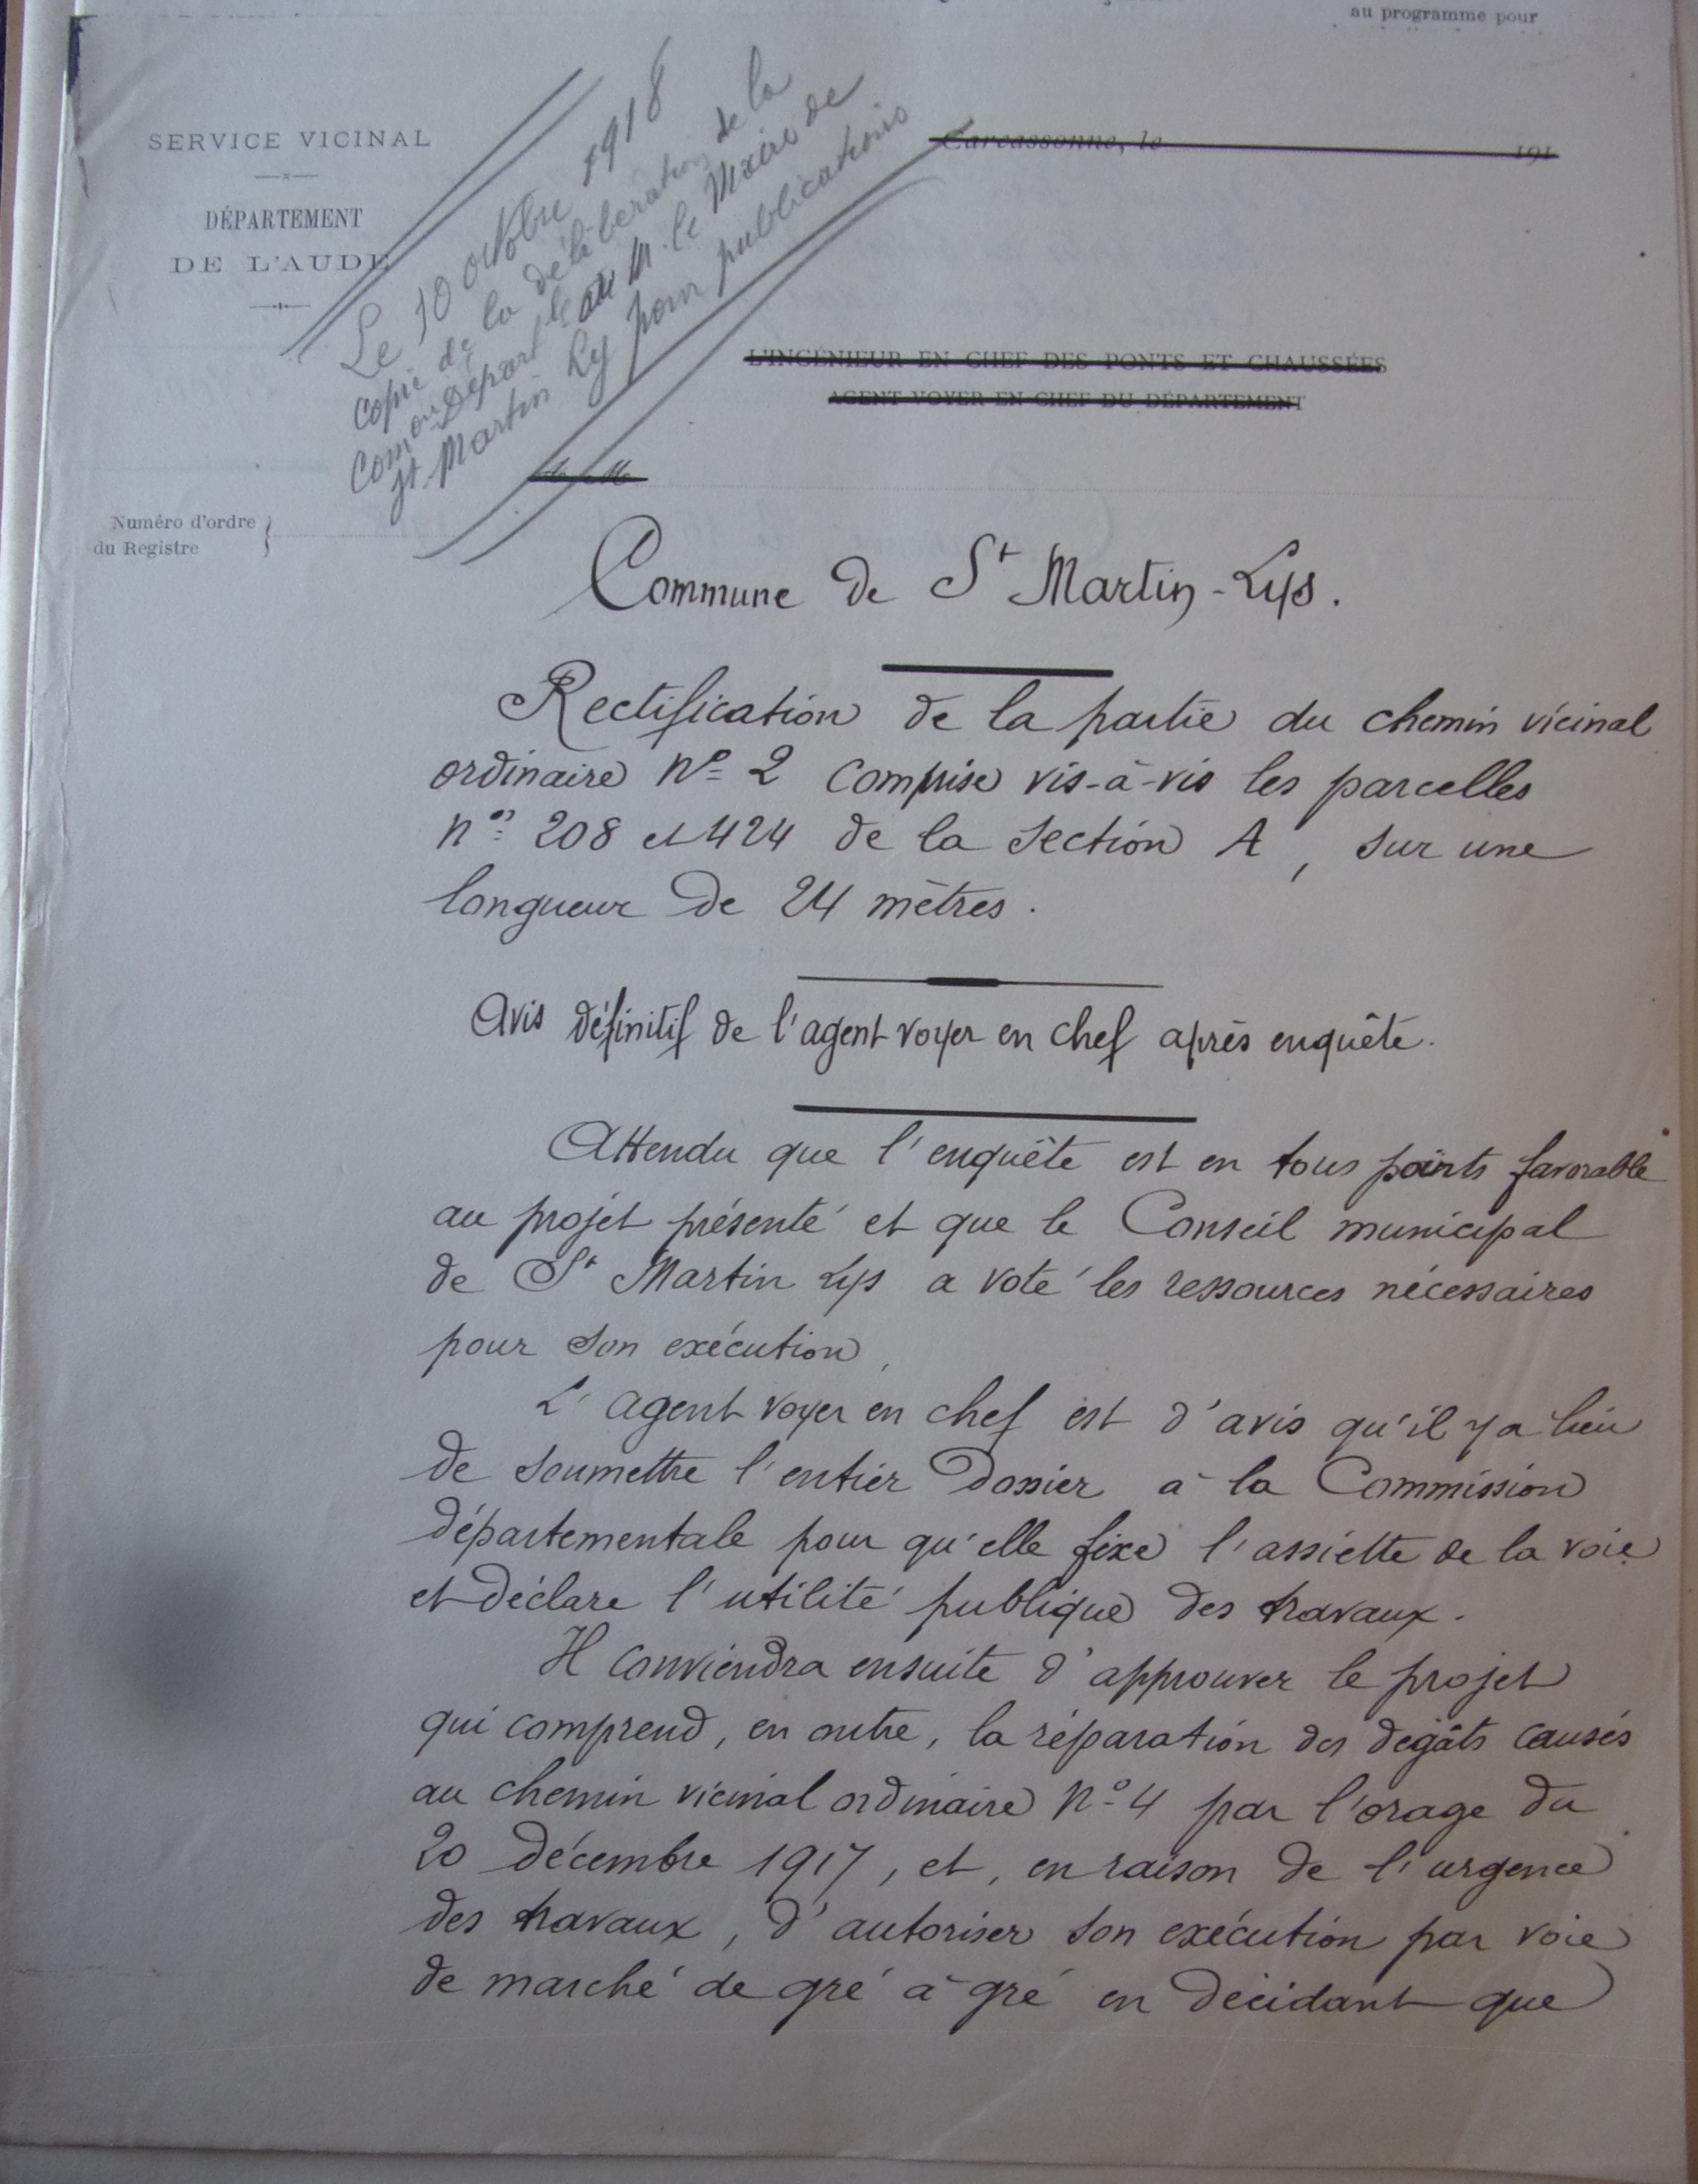 au programme pour
SERVICE VICINAL
DÉPARTEMENT
DE L'AUDE
Le 10 octobre 1918
copie de la délibération de la
Comon Départle à M. le Maire de
St Martin Ly pour publications
Carcassonne, le 191
L'INGÉNIEUR EN CHEF DES PONTS ET CHAUSSÉES
AGENT VOYER EN CHEF DU DÉPARTEMENT
à M
Numéro d'ordre
du Registre
Commune de St Martin-Lys.
Rectification de la partie du chemin vicinal
ordinaire No 2 comprise vis-à-vis les parcelles
nos 208 et 424 de la section A, sur une
longueur de 24 mètres.
Avis définitif de l'agent voyer en chef après enquête.
Attendu que l'enquête est en tous points favorable
au projet présenté et que le Conseil municipal
de St Martin Lys a voté les ressources nécessaires
pour son exécution,
L'agent voyer en chef est d'avis qu'il y a lieu
de soumettre l'entier dossier à la Commission
départementale pour qu'elle fixe l'assiette de la voie
et déclare l'utilité publique des travaux.
Il conviendra ensuite d'approuver le projet
qui comprend, en outre, la réparation des dégâts causés
au chemin vicinal ordinaire No 4 par l'orage du
20 décembre 1917, et, en raison de l'urgence
des travaux, d'autoriser son exécution par voie
de marché de gré à gré en décidant que